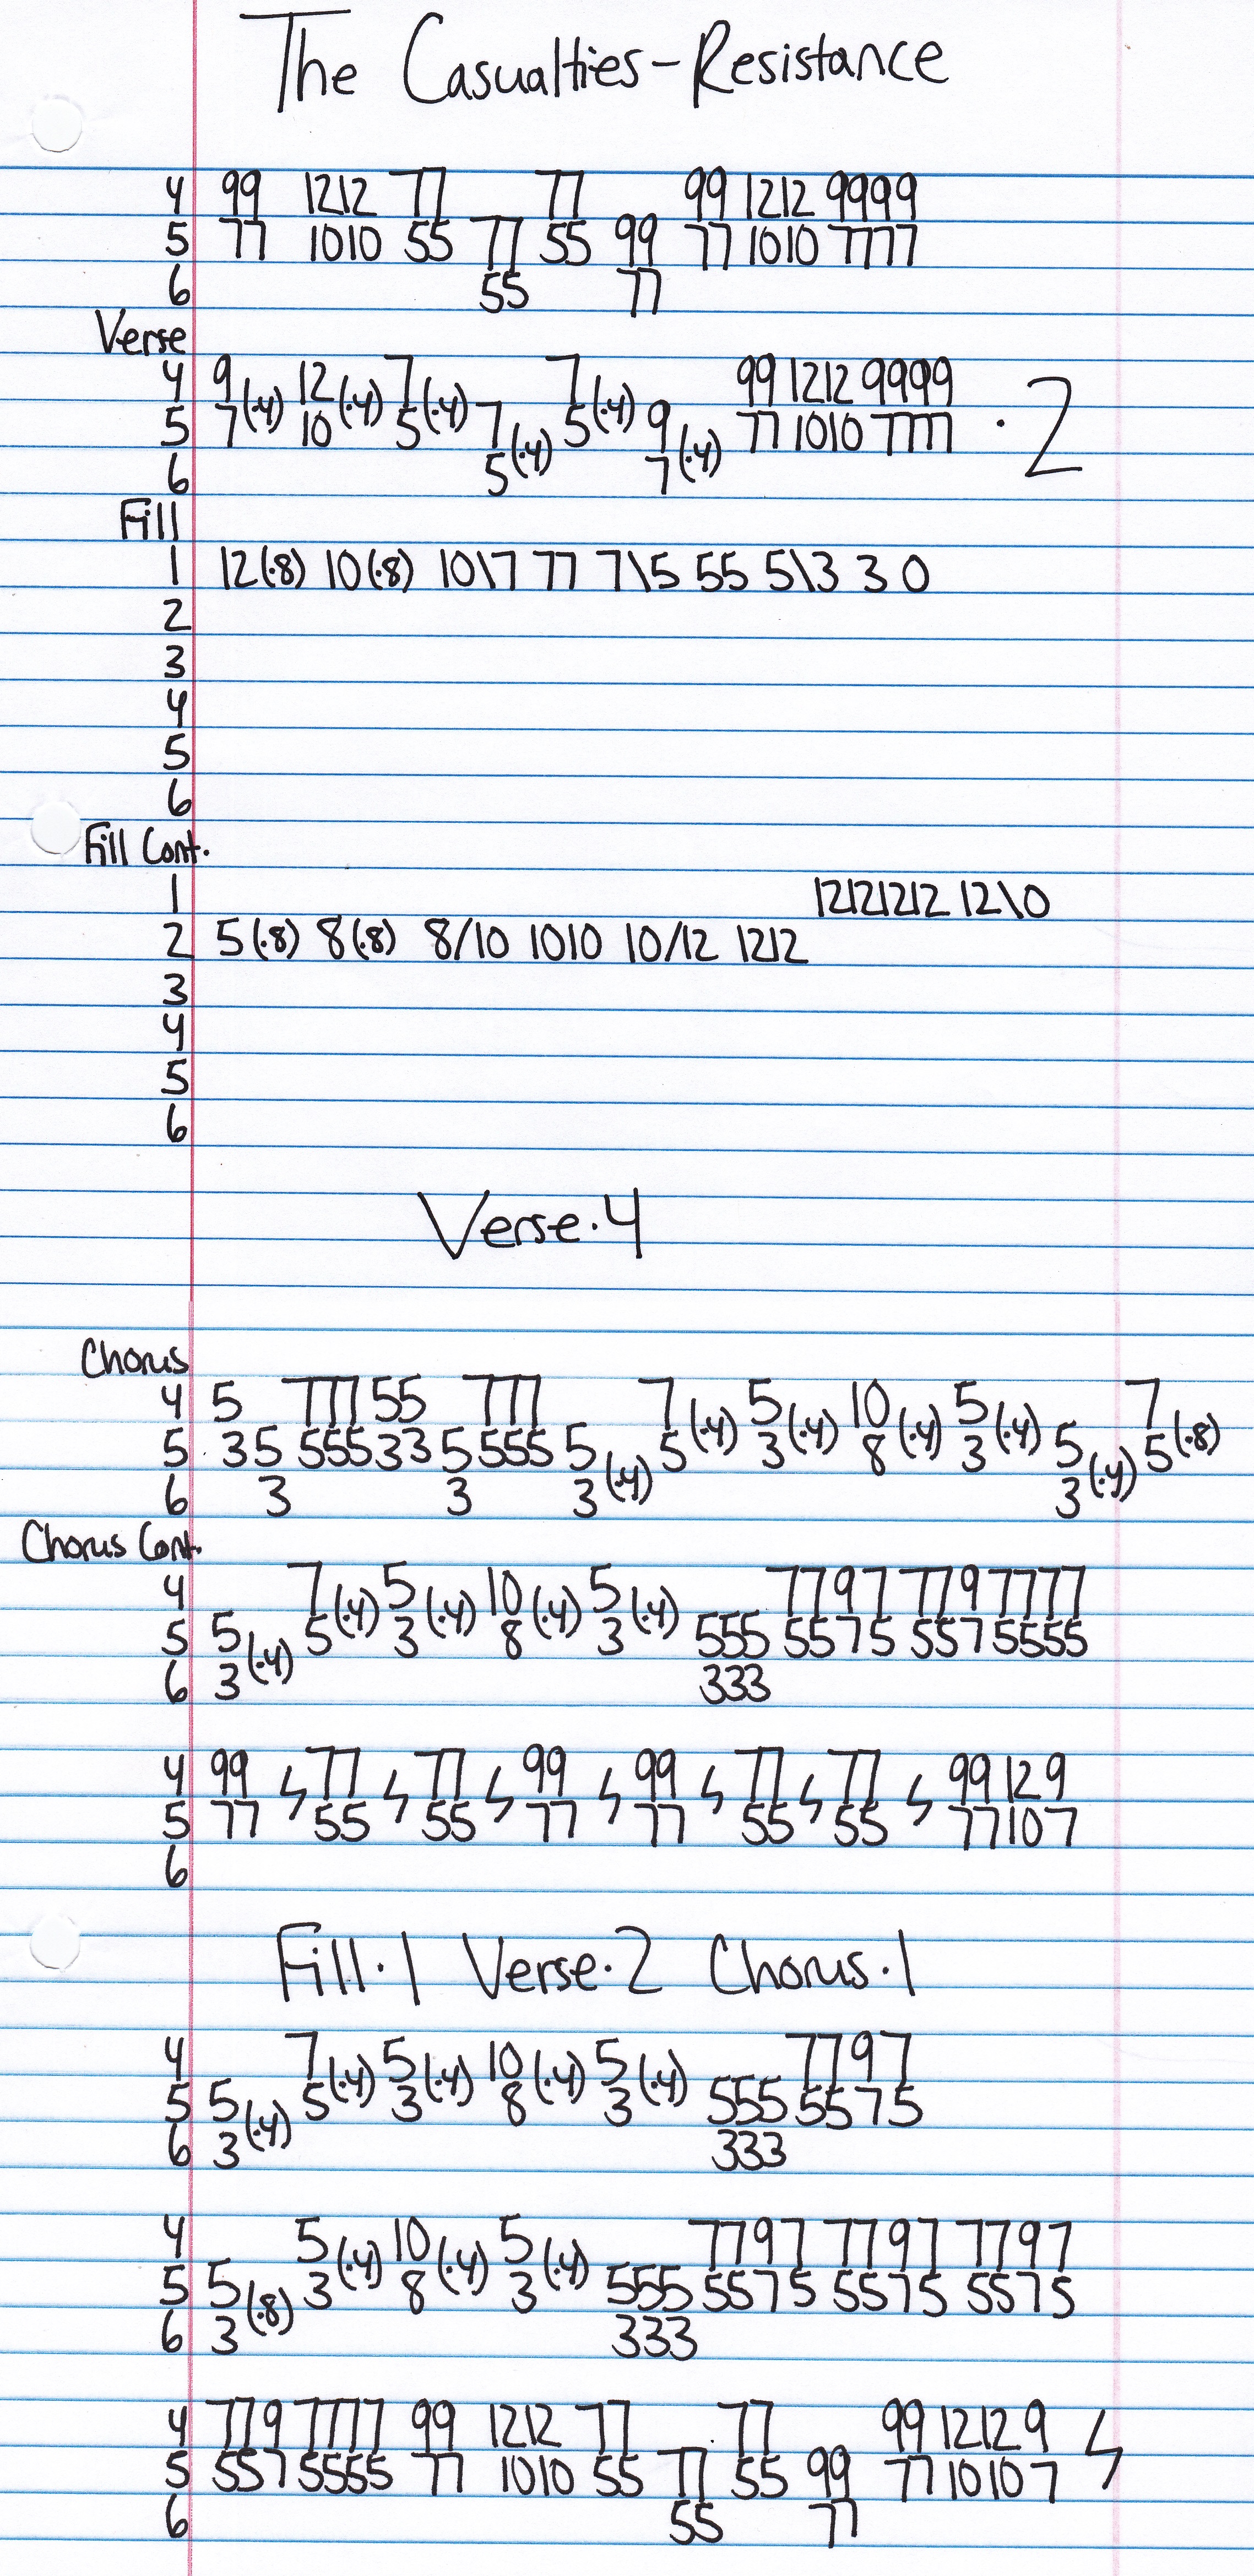 The Casualties-Resistance
4 99 1212 77 77 99 1212 9999
5 77 1010 55 77 55 99 77 1010 7777
6 55 77
Verse
4 9 (·4) 12 (·4) 7 (·4) 7 (·4) 99 1212 9999 · 2
5 7 10 5 7 (·4) 5 9 (·4) 77 1010 7777
6 5 7
Fill
1 12(·8) 10(·8) 10\7 77 7\5 55 5\3 3 0
2
3
4
5
6
Fill Cont.
1 12121212 12\0
2 5(·8) 8(·8) 8/10 1010 10/12 1212
3
4
5
6
Verse·4
Chorus
4 5 777 55 777 7 (·4) 5 (·4) 10 (·4) 5 (·4) 7 (·8)
5 35 555 33 5 555 5 (·4) 5 3 8 3 5 (·4) 5
6 3 3 3 3
Chorus Cont.
4 7 (·4) 5 (·4) 10 (·4) 5 (·4) 7797 779 7777
5 5 (·4) 5 3 8 3 555 5575 557 5555
6 3 333
4 99 77 77 99 99 77 77 99 12 9
5 77 55 55 77 77 55 55 77 10 7
6
Fill·1 Verse·2 Chorus·1
4 7 (·4) 5 (·4) 10 (·4) 5 (·4) 7797
5 5 (·4) 5 3 8 3 555 5575
6 3 333
4 5 (·4) 10 (·4) 5 (·4) 7797 7797 7797
5 5 (·8) 3 8 3 555 5575 5575 5575
6 3 333
4 779 7777 99 1212 77 77 99 1212 9
5 557 5555 77 1010 55 77 55 99 77 1010 7
6 55 77